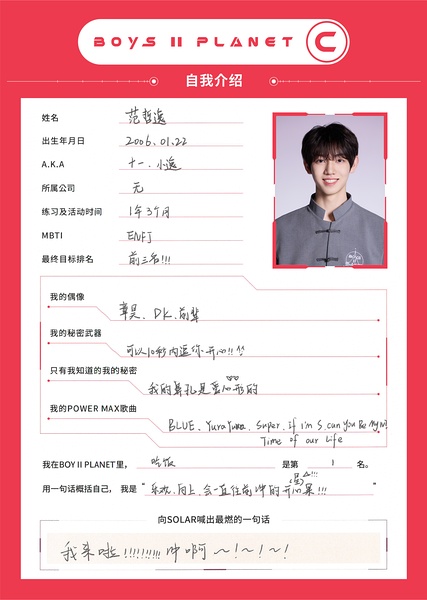 BOYS II PLANET C
自我介绍
姓名 范哲逸
出生年月日 2006.01.22
A.K.A 十一、小逸
所属公司 无
练习及活动时间 1年3个月
MBTI ENFJ
最终目标排名 前三名!!!
我的偶像
章昊、DK、前辈
我的秘密武器
可以10秒内逗你开心!! ^^
只有我知道的我的秘密
我的鼻孔是爱心形的
我的POWER MAX歌曲
BLUE、Yura Yura、Super、if i'm S, can you Be my N
Time of our Life
我在BOY II PLANET里, 吃饭 是第 1 名。
用一句话概括自己, 我是 " 乐观、向上、会一直往前冲的开心果!!! "
向SOLAR喊出最燃的一句话
我来啦!!!!!!!!!! 冲啊~!~!~!